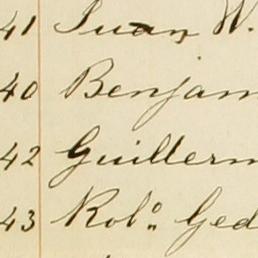 41 Juan W.
40 Benjam
42 Guillerm
43 Robº Ged